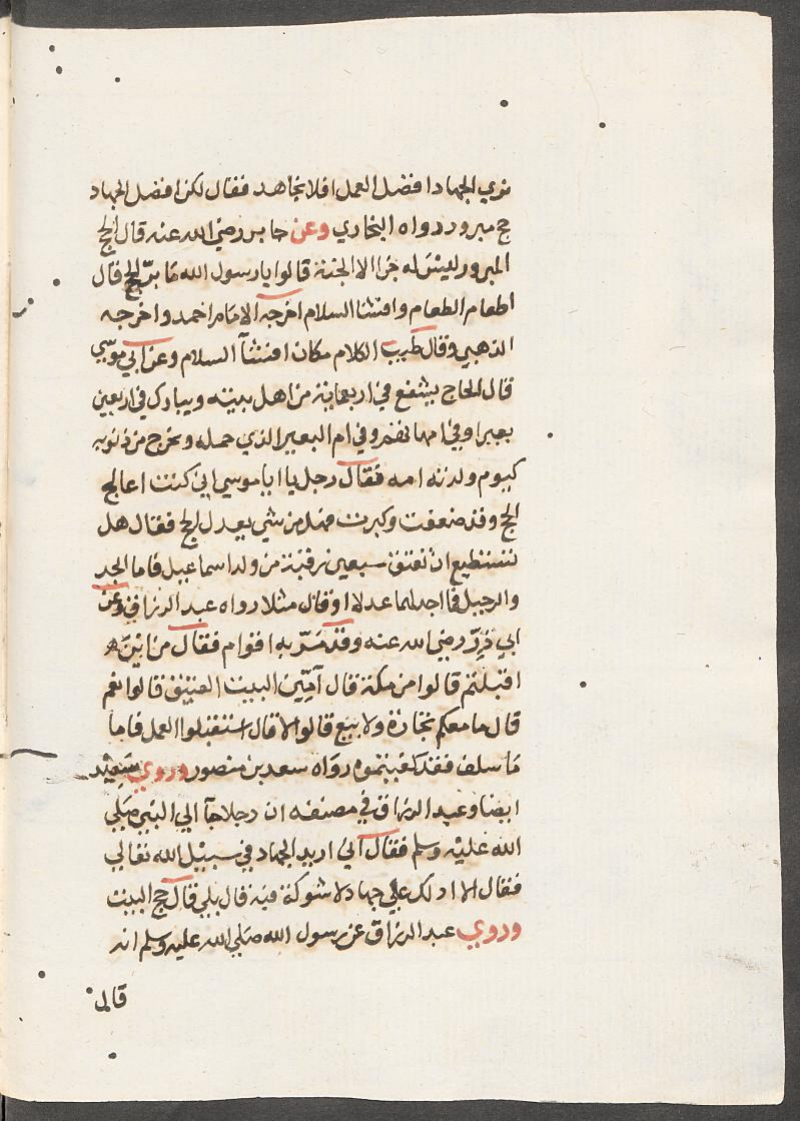 نري الجهاد افضل العمل افلا نجاهد فقال لكن افضل الجهاد
حج مبرور رواه البخاري وعن جابر رضي الله عنه قال الحج
المبرور ليس له جزا الا الجنة قالوا يا رسول الله ما بر الحج قال
اطعام الطعام وافشا السلام اخرجه الامام احمد واخرجه
الذهبي وقال طيب الكلام مكان افشآ السلام وعن ابي موسي
قال الحاج يشفع في اربعماية من اهل بيته ويبارك في اربعين
بعيرا وفي امهاتهم وفي ام البعير الذي حمله ويخرج من ذنوبه
كيوم ولدته امه فقال رجل يا ابا موسي اني كنت اعالج
الحج وقد ضعفت وكبرت فهل من شي يعدل الحج فقال هل
تستطيع ان تعتق سبعين رقبة من ولد اسماعيل فاما الحد
والرحيل فما اجد لها عدلا او قال مثلا رواه عبد الرزاق وعن
ابي ذر رضي الله عنه وقد مر به اقوام فقال من اين
اقبلتم قالوا من مكة قال آمين البيت العتيق قالوا نعم
قال ما معكم تجارة ولا بيع قالوا لا قال استقبلوا العمل فاما
ما سلف فقد كفيتموه رواه سعد بن منصور وروي سعيد
ايضا وعبد الرزاق في مصنفه ان رجلا جآ الي النبي صلي
الله عليه وسلم فقال اني اريد الجهاد في سبيل الله تعالي
فقال الا ادلك علي جهاد لا شوكة فيه قال بلي قال حج البيت
وروي عبد الرزاق عن رسول الله صلي الله عليه وسلم انه
قال